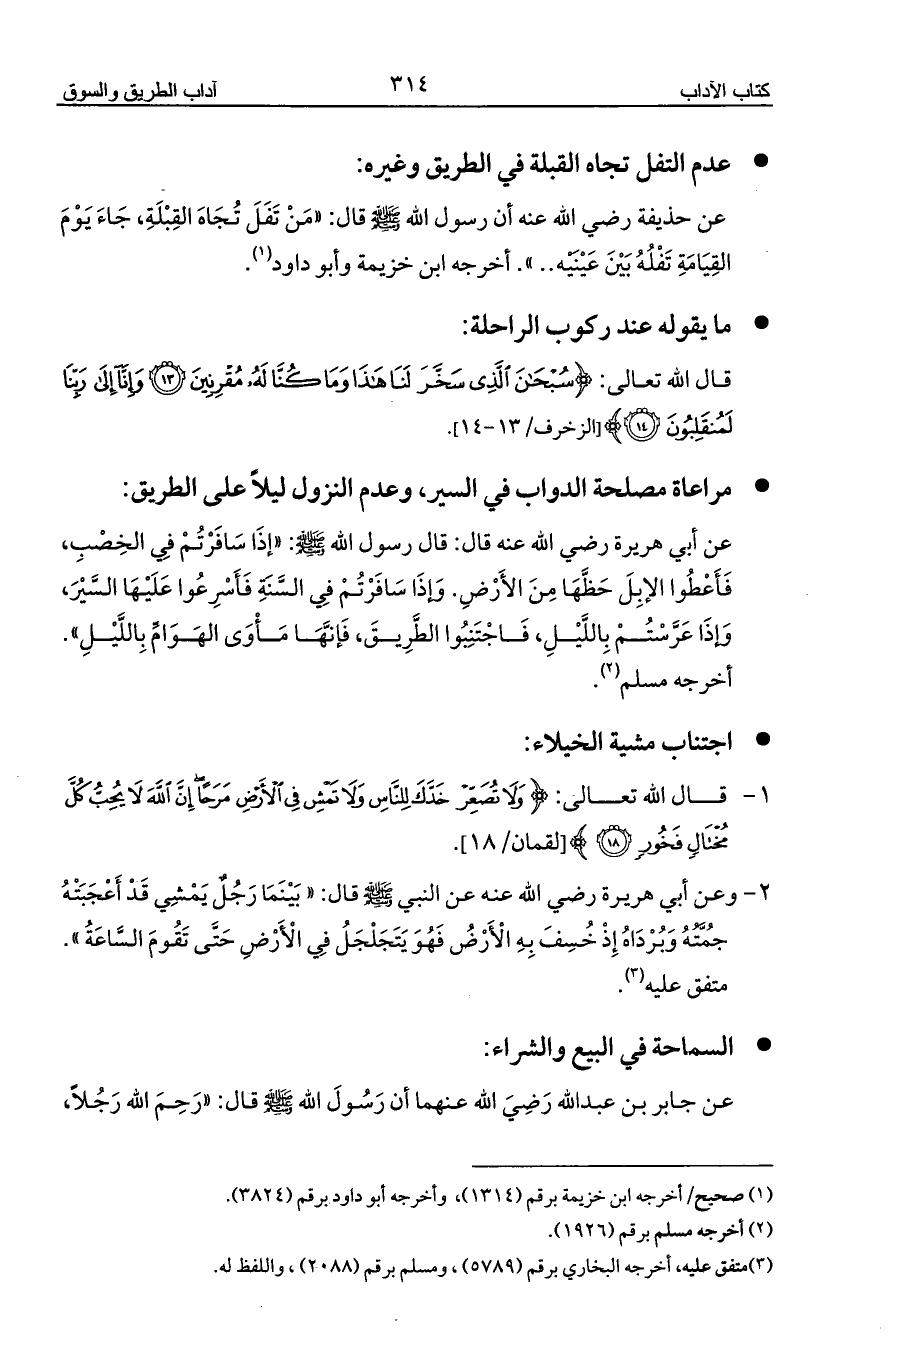 كتاب الآداب ٣١٤ آداب الطريق والسوق
• عدم التفل تجاه القبلة في الطريق وغيره:
عن حذيفة رضي الله عنه أن رسول الله ﷺ قال: «مَنْ تَفَلَ تُجَاهَ القِبْلَةِ، جَاءَ يَوْمَ
القِيَامَةِ تَفْلُهُ بَيْنَ عَيْنَيْه.. ». أخرجه ابن خزيمة وأبو داود(١).
• ما يقوله عند ركوب الراحلة:
قال الله تعالى: ﴿سُبْحَٰنَ ٱلَّذِى سَخَّرَ لَنَا هَٰذَا وَمَا كُنَّا لَهُۥ مُقْرِنِينَ ﴿١٣﴾ وَإِنَّآ إِلَىٰ رَبِّنَا
لَمُنقَلِبُونَ ﴿١٤﴾﴾ [الزخرف/ ١٣-١٤].
• مراعاة مصلحة الدواب في السير، وعدم النزول ليلاً على الطريق:
عن أبي هريرة رضي الله عنه قال: قال رسول الله ﷺ: «إذَا سَافَرْتُمْ فِي الخِصْبِ،
فَأَعْطُوا الإبِلَ حَظَّهَا مِنَ الأَرْضِ. وَإذَا سَافَرْتُمْ فِي السَّنَةِ فَأَسْرِعُوا عَلَيْهَا السَّيْرَ،
وَإذَا عَرَّسْتُمْ بِاللَّيْلِ، فَاجْتَنِبُوا الطَّرِيقَ، فَإنَّهَا مَأْوَى الهَوَامِّ بِاللَّيْلِ».
أخرجه مسلم(٢).
• اجتناب مشية الخيلاء:
١- قال الله تعالى: ﴿وَلَا تُصَعِّرْ خَدَّكَ لِلنَّاسِ وَلَا تَمْشِ فِى ٱلْأَرْضِ مَرَحًا ۖ إِنَّ ٱللَّهَ لَا يُحِبُّ كُلَّ
مُخْتَالٍ فَخُورٍ ﴿١٨﴾﴾ [لقمان/ ١٨].
٢- وعن أبي هريرة رضي الله عنه عن النبي ﷺ قال: «بَيْنَمَا رَجُلٌ يَمْشِي قَدْ أَعْجَبَتْهُ
جُمَّتُهُ وَبُرْدَاهُ إذْ خُسِفَ بِهِ الْأَرْضُ فَهُوَ يَتَجَلْجَلُ فِي الْأَرْضِ حَتَّى تَقُومَ السَّاعَةُ».
متفق عليه(٣).
• السماحة في البيع والشراء:
عن جابر بن عبدالله رَضِيَ الله عنهما أن رَسُولَ الله ﷺ قال: «رَحِمَ الله رَجُلاً،
(١) صحيح/ أخرجه ابن خزيمة برقم (١٣١٤)، وأخرجه أبو داود برقم (٣٨٢٤).
(٢) أخرجه مسلم برقم (١٩٢٦).
(٣)متفق عليه، أخرجه البخاري برقم (٥٧٨٩) ، ومسلم برقم (٢٠٨٨) ، واللفظ له.